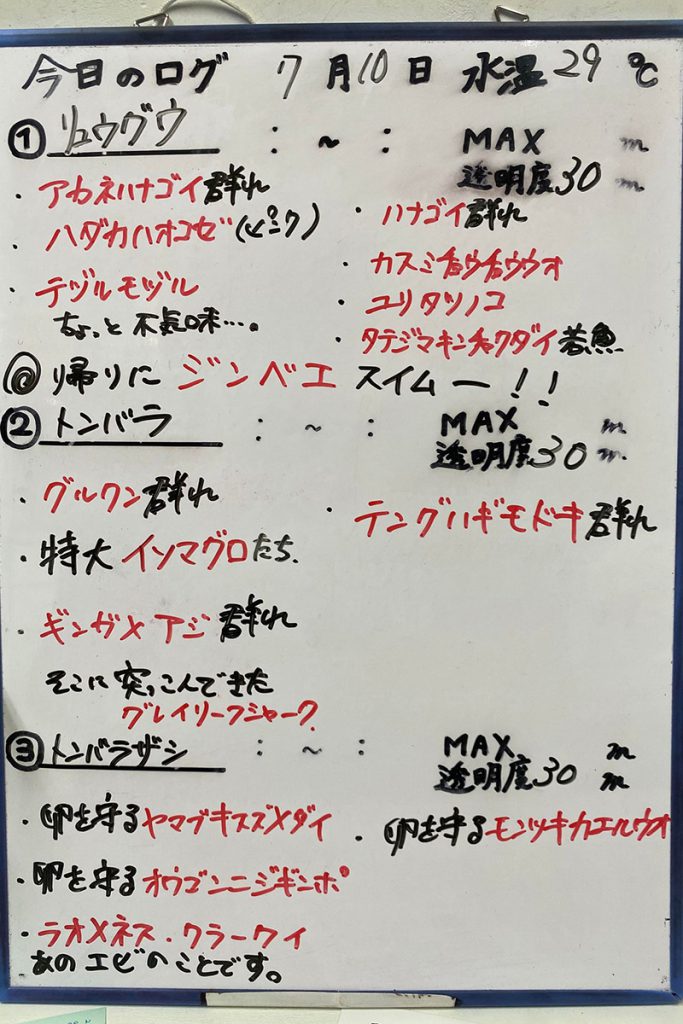 今日のログ 7月10日 水温29℃
① リュウグウ : ~ : MAX m
透明度30m
・アカネハナゴイ群れ
・ハダカハオコゼ(ピンク)
・テヅルモヅル
ちょっと不気味…。
・ハナゴイ群れ
・カスミチョウチョウウオ
・ユリタツノコ
・タテジマキンチャクダイ若魚
◎帰りにジンベエスイムー!!
② トンバラ : ~ : MAX m
透明度30m
・グルクン群れ
・特大イソマグロたち.
・ギンガメアジ群れ
そこに突っこんできた
グレイリーフシャーク.
・テングハギモドキ群れ
③ トンバラザシ : ~ : MAX m
透明度30m
・卵を守るヤマブキスズメダイ
・卵を守るオウゴンニジギンポ
・ラオメネス・クラークイ
あのエビのことです。
・卵を守るモンツキカエルウオ